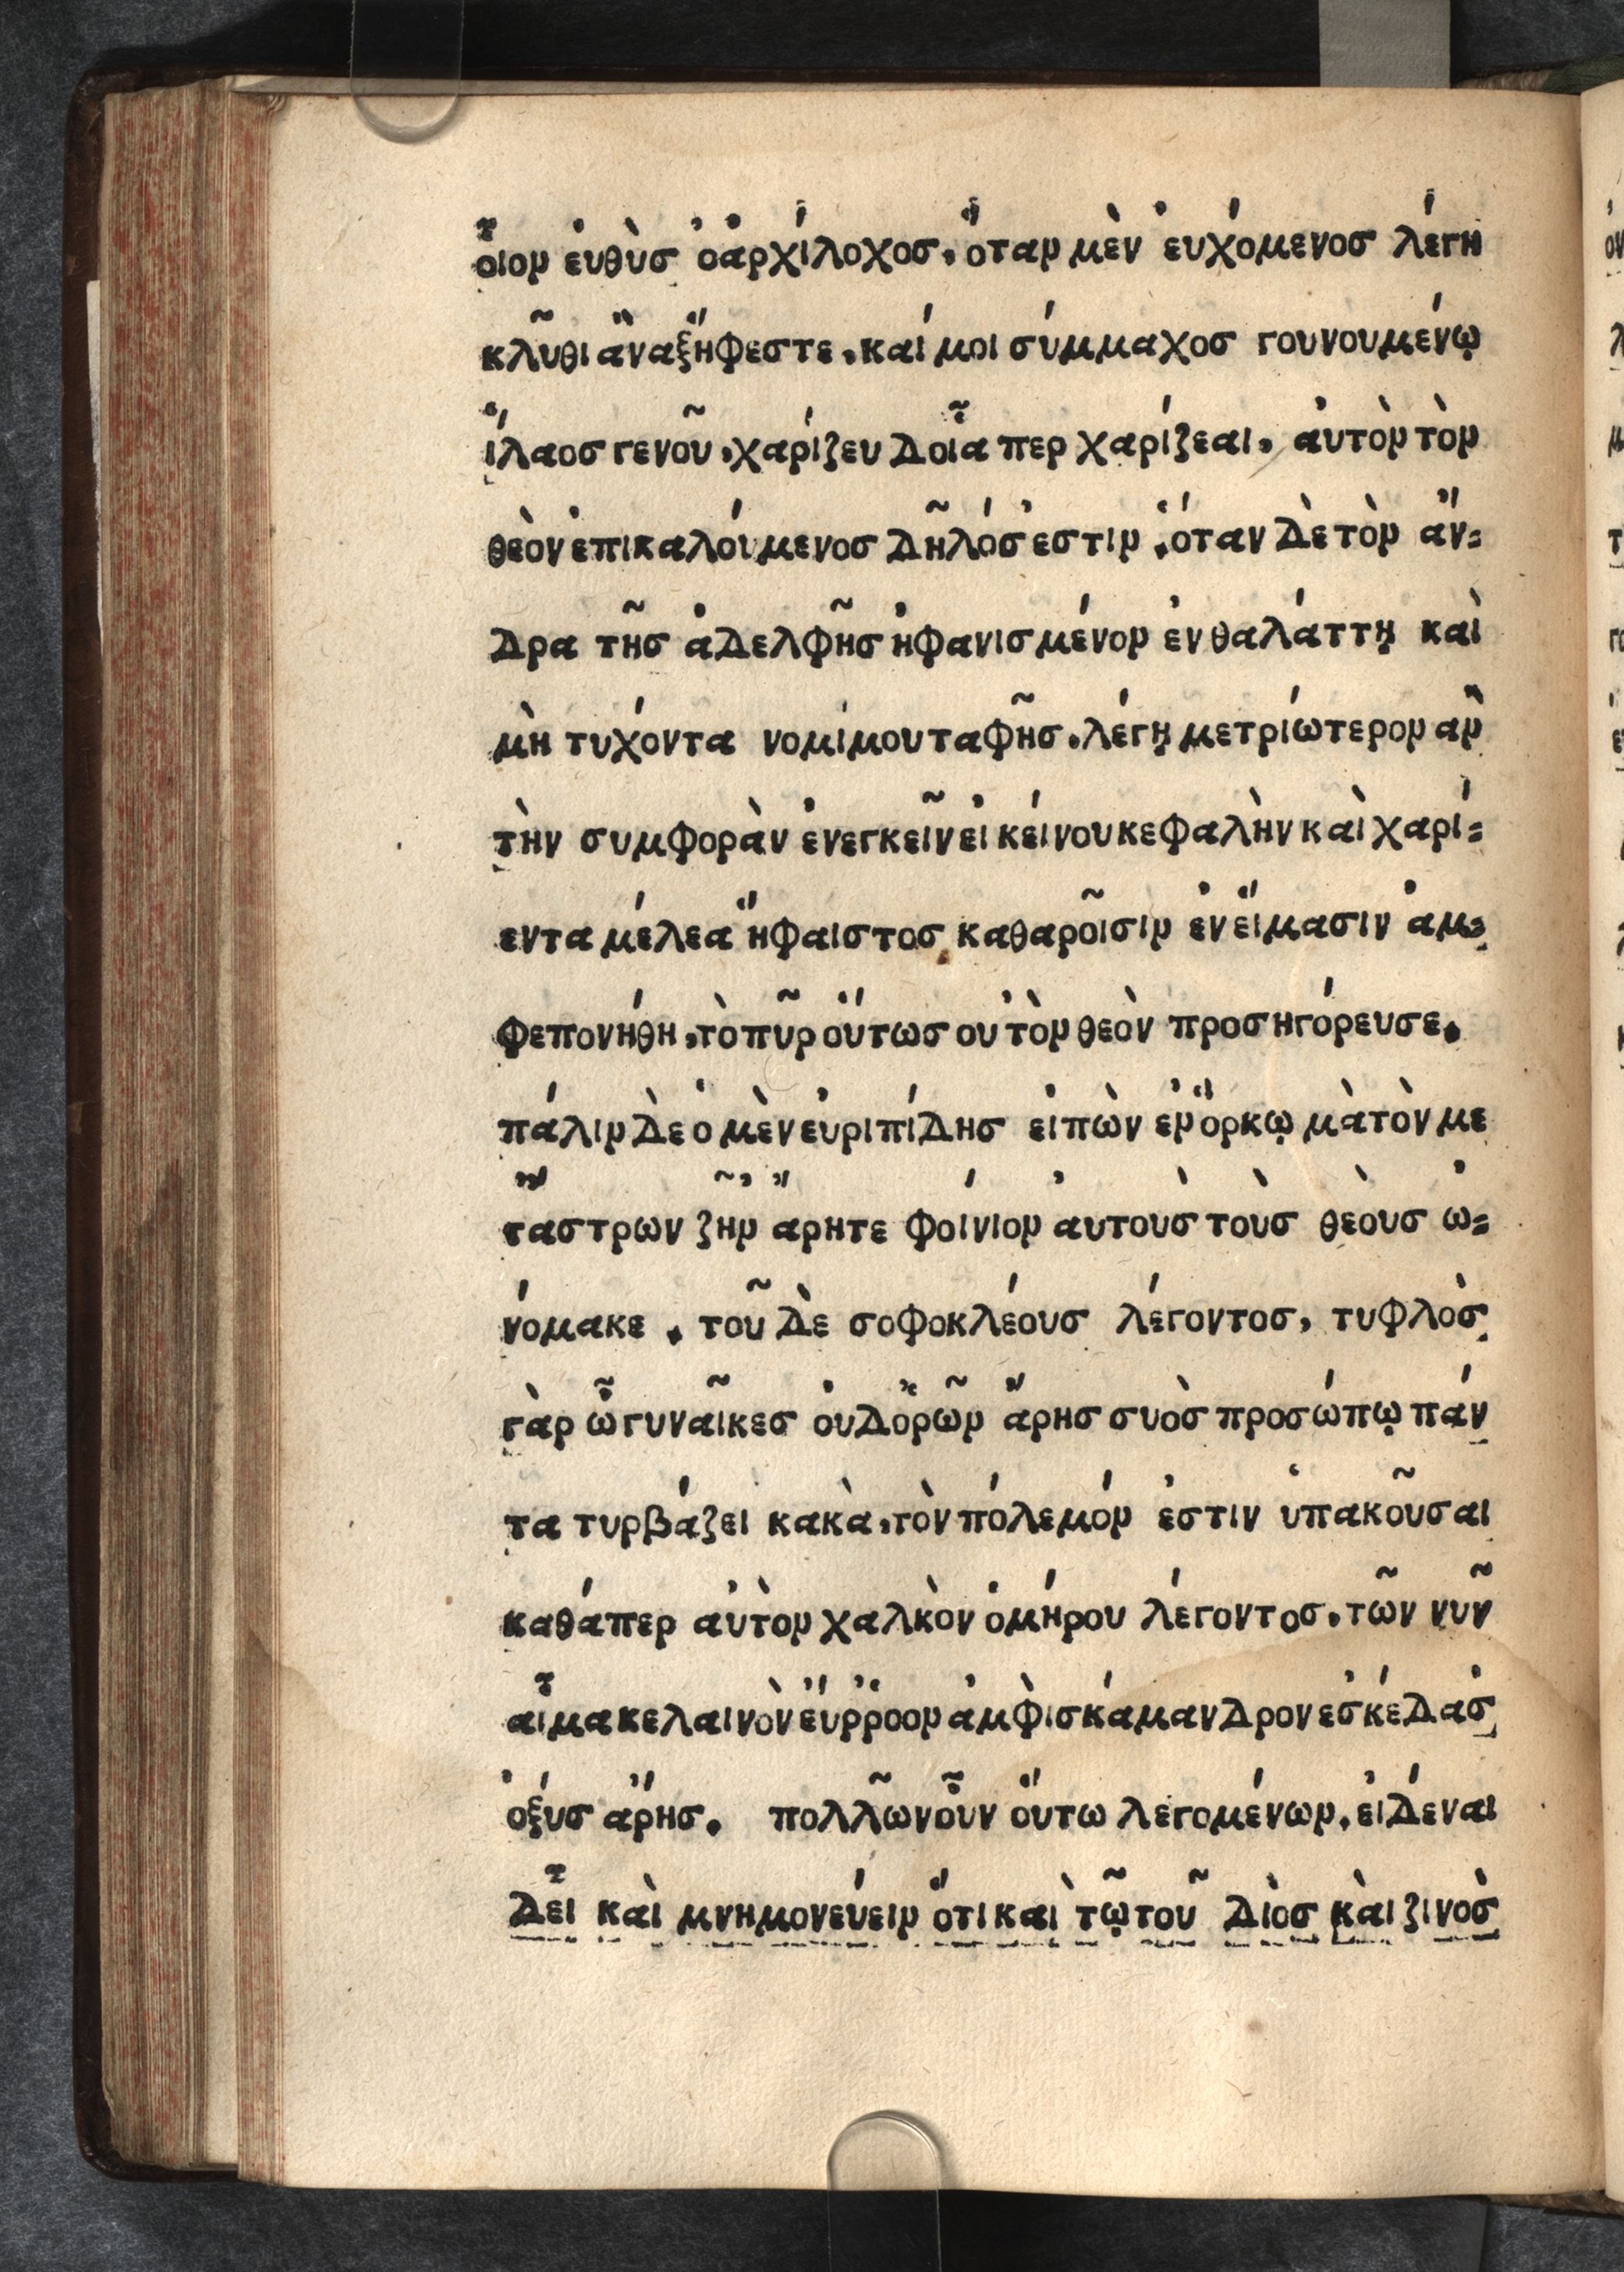 οἷον ἐυθὺσ ὀἀρχίλοχοσ, ὅταν μὲν ἐυχόμενοσ λέγη
κλῦθι ἄναξἥφεστε, καί μοι σύμμαχοσ γουνουμένῳ
ἵλαοσ γενοῦ, χαρίζευ Δοἷα περ χαρίζεαι, ἀυτὸν τὸν
θεὸν ἐπικαλούμενοσ Δῆλόσ ἐστιν, ὅταν Δὲ τὸν ἄν=
Δρα τῆσ ἀΔελφῆσ ἠφανισμένον ἐν θαλάττῃ καὶ
μὴ τυχόντα νομίμου ταφῆσ, λέγῃ μετριώτερον ἂν
τὴν συμφορὰν ἐνεγκεῖν ἐι κείνου κεφαλὴν καὶ χαρί=
εντα μέλεα ἥφαιστοσ καθαροῖσιν ἐν εἵμασιν ἀμ=
φεπονήθη, τὸ πῦρ οὕτωσ ου τὸν θεὸν προσηγόρευσε.
πάλιν Δὲ ὁ μὲν ἐυριπίΔησ ἐιπὼν ἐν ὅρκῳ μὰ τὸν με
τἄστρων ζῆν᾽ ἄρητε φοίνιον ἀυτοὺσ τοὺσ θεὸυσ ὠ=
νόμακε. τοῦ Δὲ σοφοκλέουσ λέγοντοσ, τυφλὸσ
γὰρ ὦ γυναῖκεσ ὀυΔ᾽ὁρῶν ἄρησ συὸσ προσώπῳ πάν
τα τυρβάζει κακὰ, τὸν πόλεμόν ἐστιν ὑπακοῦσαι
καθάπερ ἀυτὸν χαλκὸν ὁμήρου λέγοντοσ, τῶν νῦν
αἷμα κελαινὸν ἐύ̈ῤῥοον ἀμφὶσκάμανΔρον ἐσκέΔασ
ὀξύσ ἄρησ. πολλῶν οὖν οὕτω λεγομένων, ἐιΔέναι
Δεῖ καὶ μνημονεύειν ὅτι καὶ τῷ τοῦ Διὸσ κὰι ζινὸσ